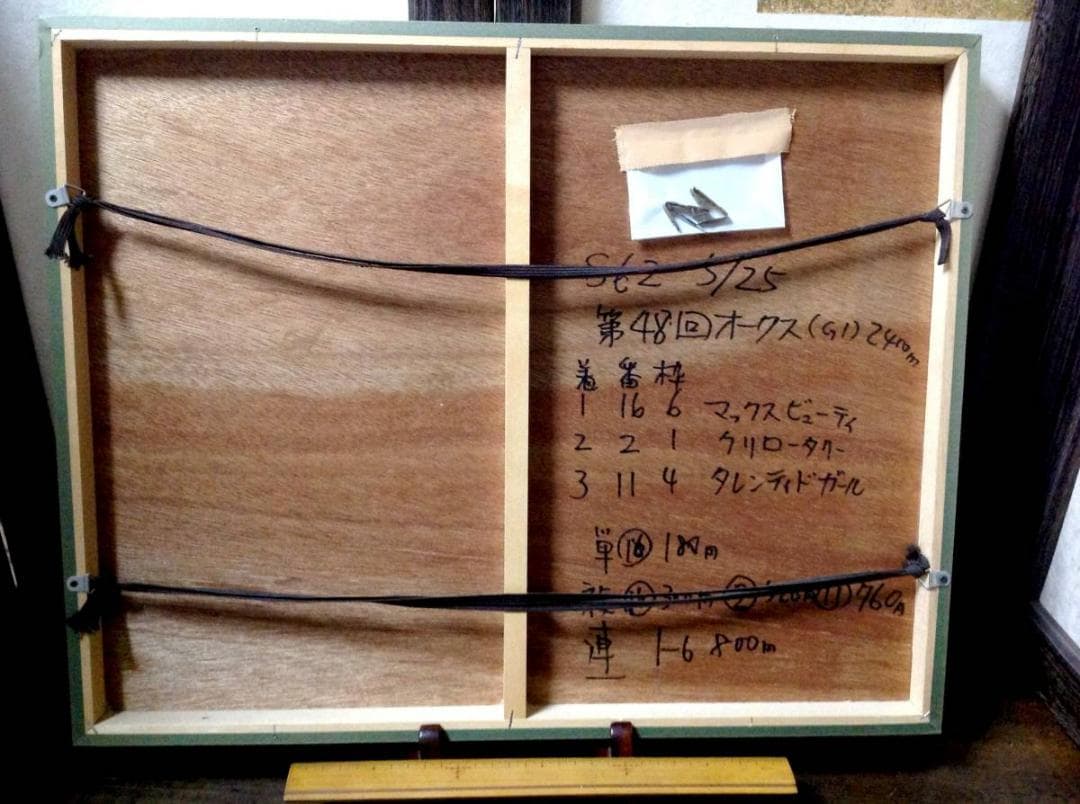 S62 5/25
第48回オークス(G1)2400m
着 番 枠
1 16 6 マックスビューティ
2 2 1 クリロータリー
3 11 4 タレンティドガール
単 ⑯ 180円
複 ⑯ ② ⑪ 760円
連 1-6 800円